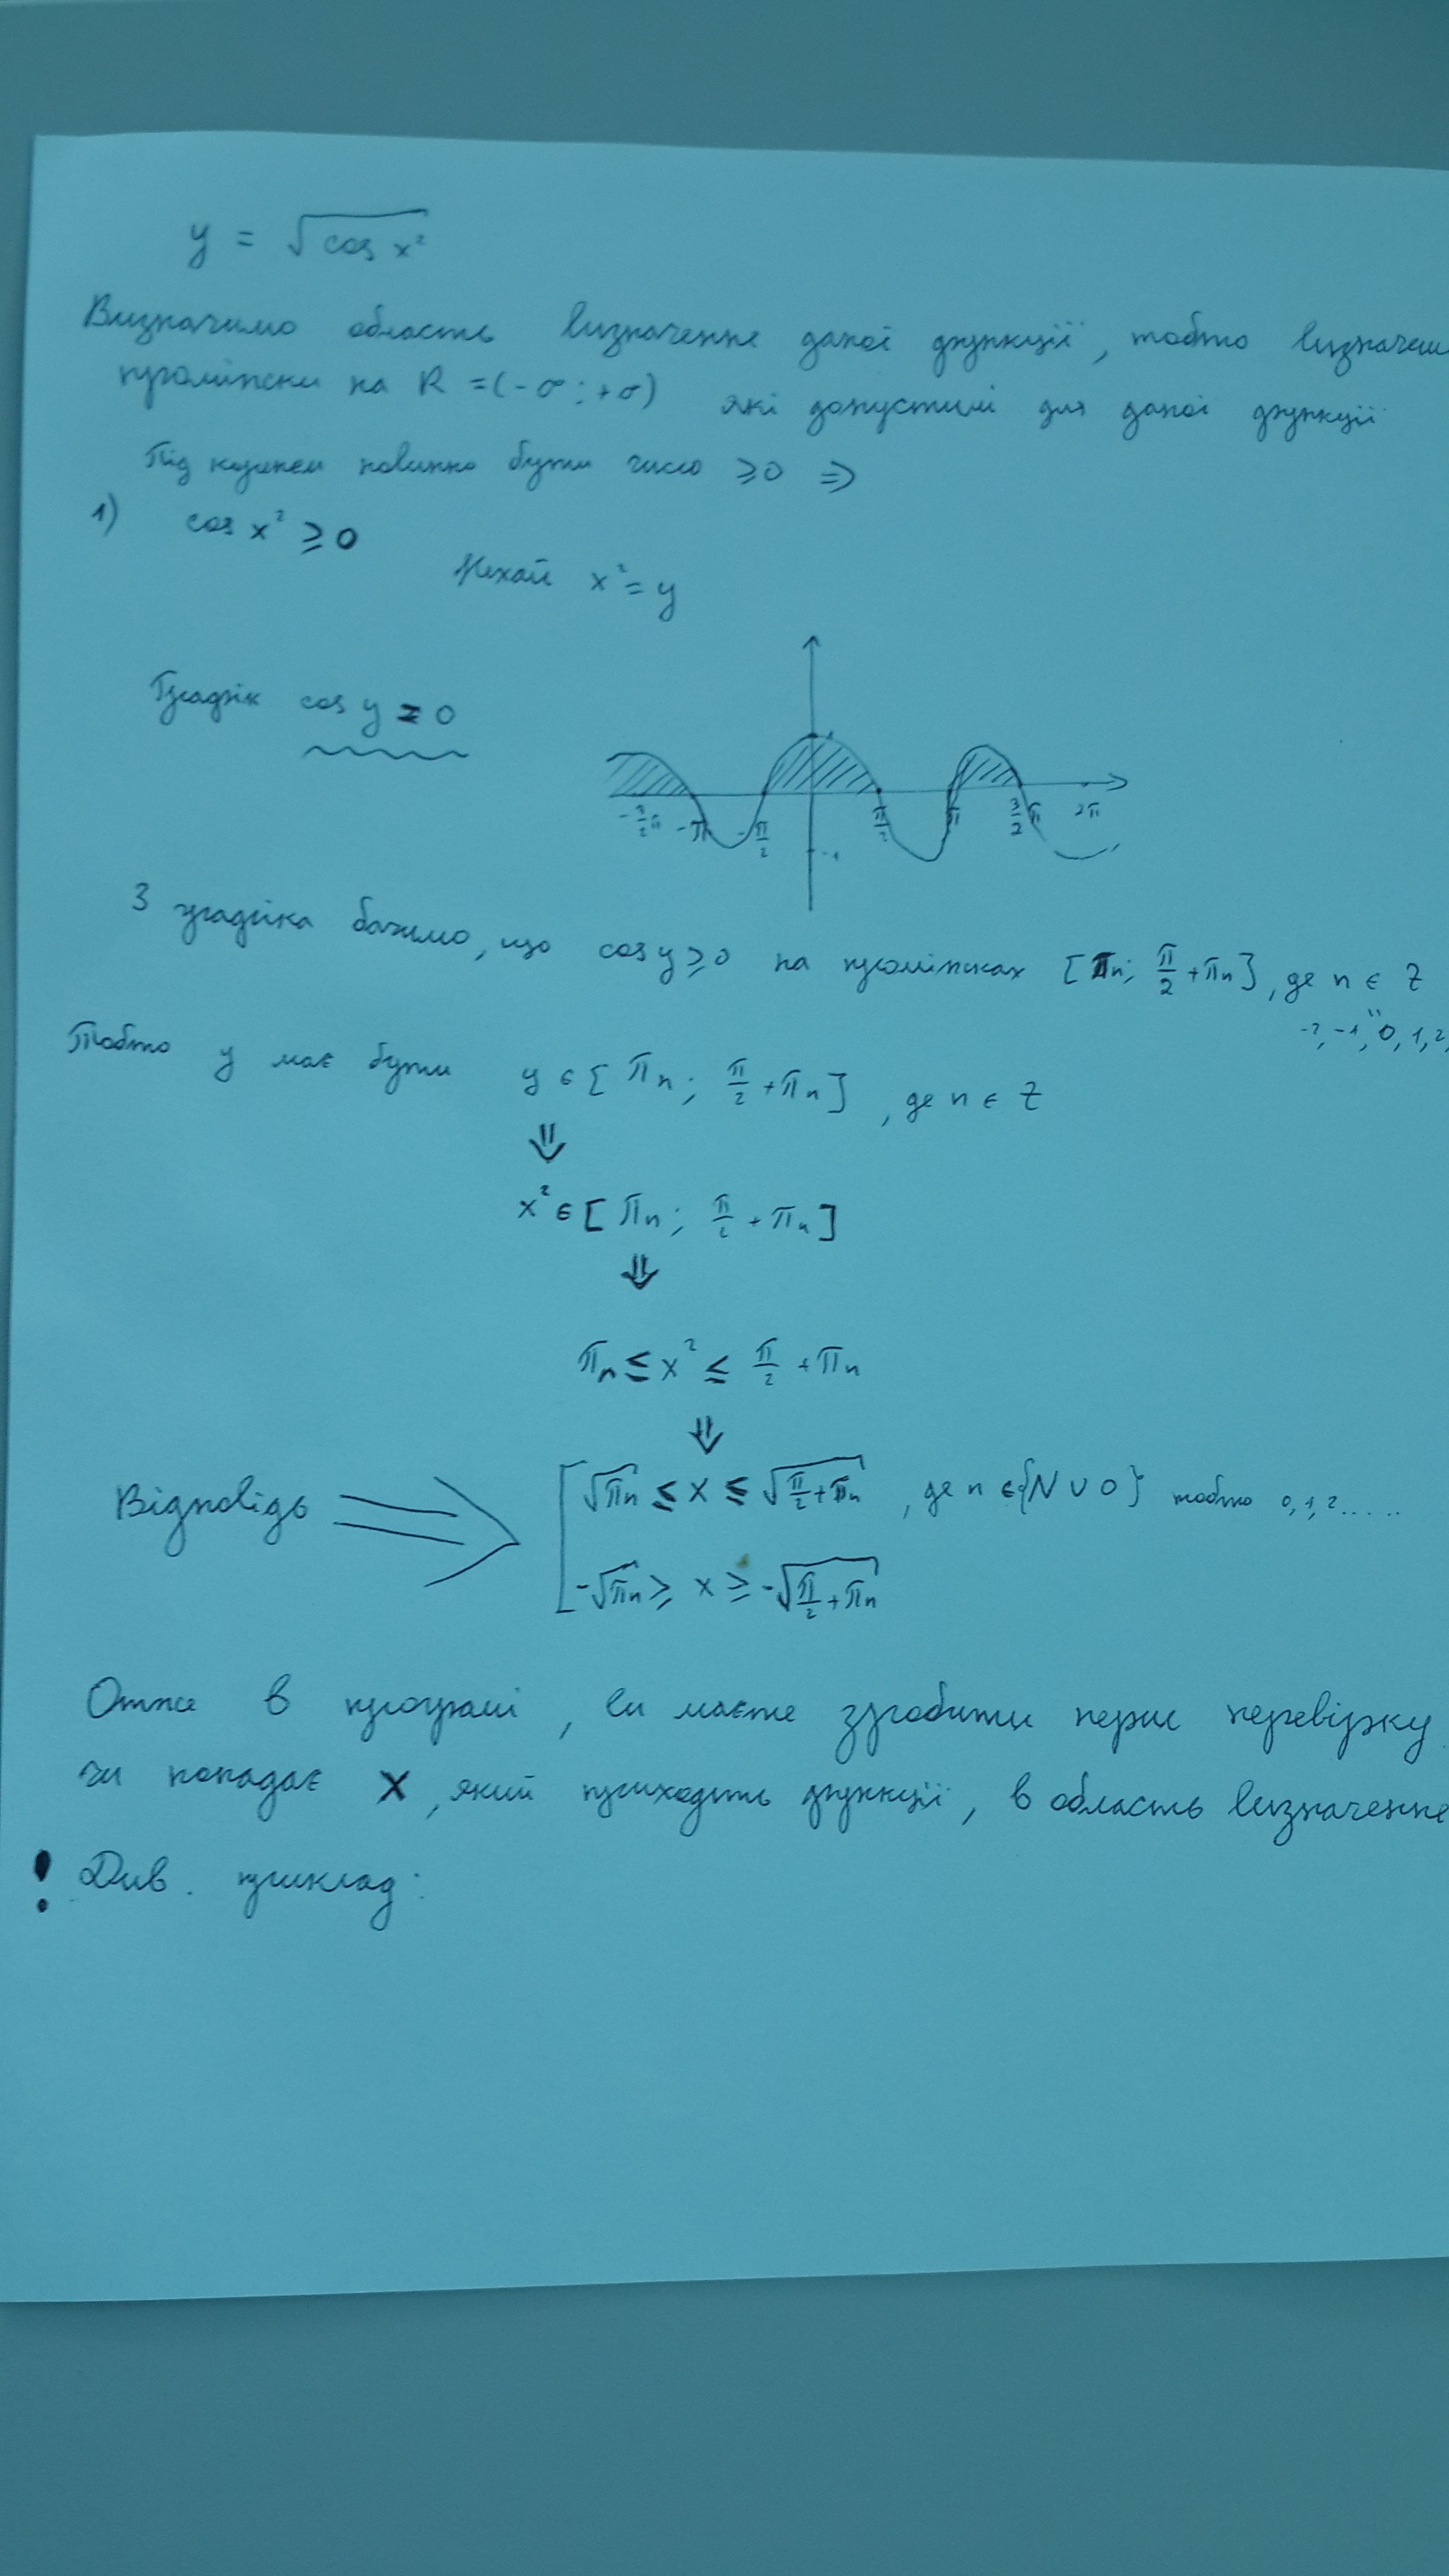 y = √cos x²
Визначимо область визначення даної функції, тобто визначеш
проміжки на R = (-∞; +∞) які допустимі для даної функції
Під коренем повинно бути число ≥0 ⇒
1) cos x² ≥ 0
Нехай x² = y
Графік cos y ≥ 0
1
-3/2π -π -π/2 π/2 π 3/2π 2π
-1
З графіка бачимо, що cos y ≥ 0 на проміжках [πn; π/2 + πn], де n ∈ Z
-2, -1, 0, 1, 2,
Тобто y має бути y ∈ [πn; π/2 + πn], де n ∈ Z
⇓
x² ∈ [πn; π/2 + πn]
⇓
πn ≤ x² ≤ π/2 + πn
⇓
Відповідь ⇒ [ √πn ≤ x ≤ √π/2 + πn, де n ∈ {N ∪ 0} тобто 0, 1, 2.....
-√πn ≥ x ≥ -√π/2 + πn
Отже в програмі, ви маєте зробити перш перевірку
чи попадає X, який приходить функції, в область визначення
! Див. приклад: